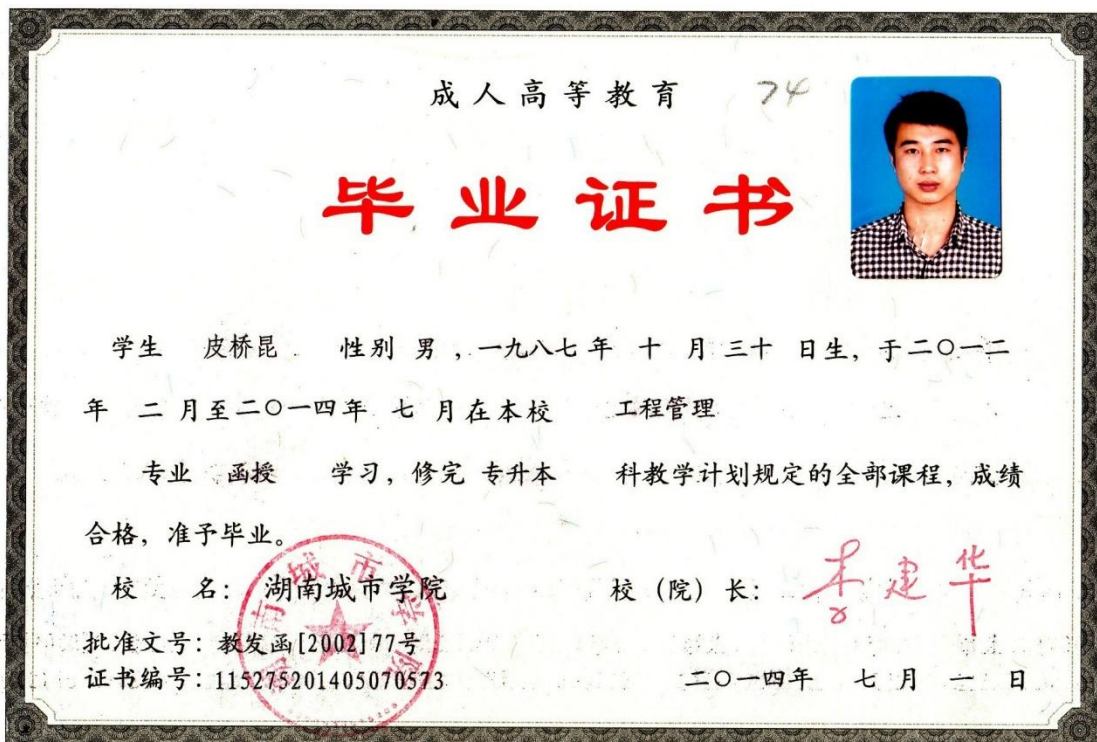 成人高等教育 74
毕业证书
学生 皮桥昆 性别 男 ，一九八七年 十 月 三十 日生，于二〇一二
年 二 月至二〇一四年 七 月在本校 工程管理
专业 函授 学习，修完 专升本 科教学计划规定的全部课程，成绩
合格，准予毕业。
校 名： 湖南城市学院 校（院）长： 李建华
批准文号：教发函[2002]77号
证书编号：115275201405070573
二〇一四年 七 月 一 日
湖南城市学院